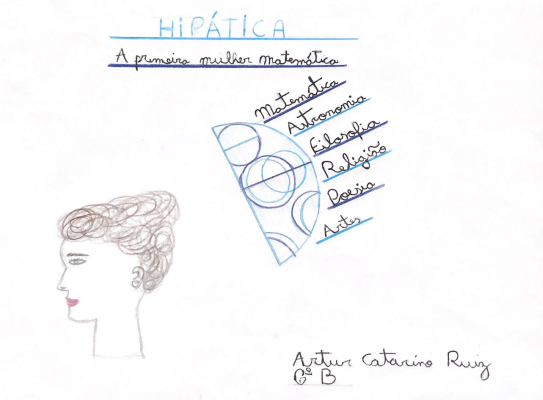 HIPÁTICA
A primeira mulher matemática
Matemática
Astronomia
Filosofia
Religião
Poesia
Artes
Artur Catarino Ruiz
6º B